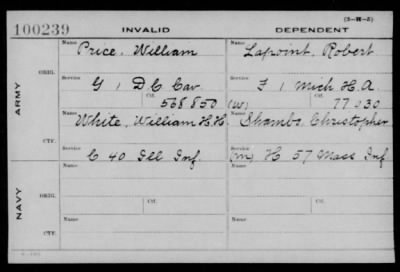 (3-H-5)
100239 INVALID DEPENDENT
Name Price, William Name Lapoint, Robert
ORIG.
Service G 1 D C Cav. Service F 1 Mich H. A.
Ctf. 568850 (W) Ctf. 77030
ARMY
Name White, William H. H. Name Shambo, Christopher
CTF.
Service C 40 Ill Inf. Service (m) H 57 Mass Inf
Name Name
ORIG.
Ctf. Ctf.
NAVY
Name Name
CTF.